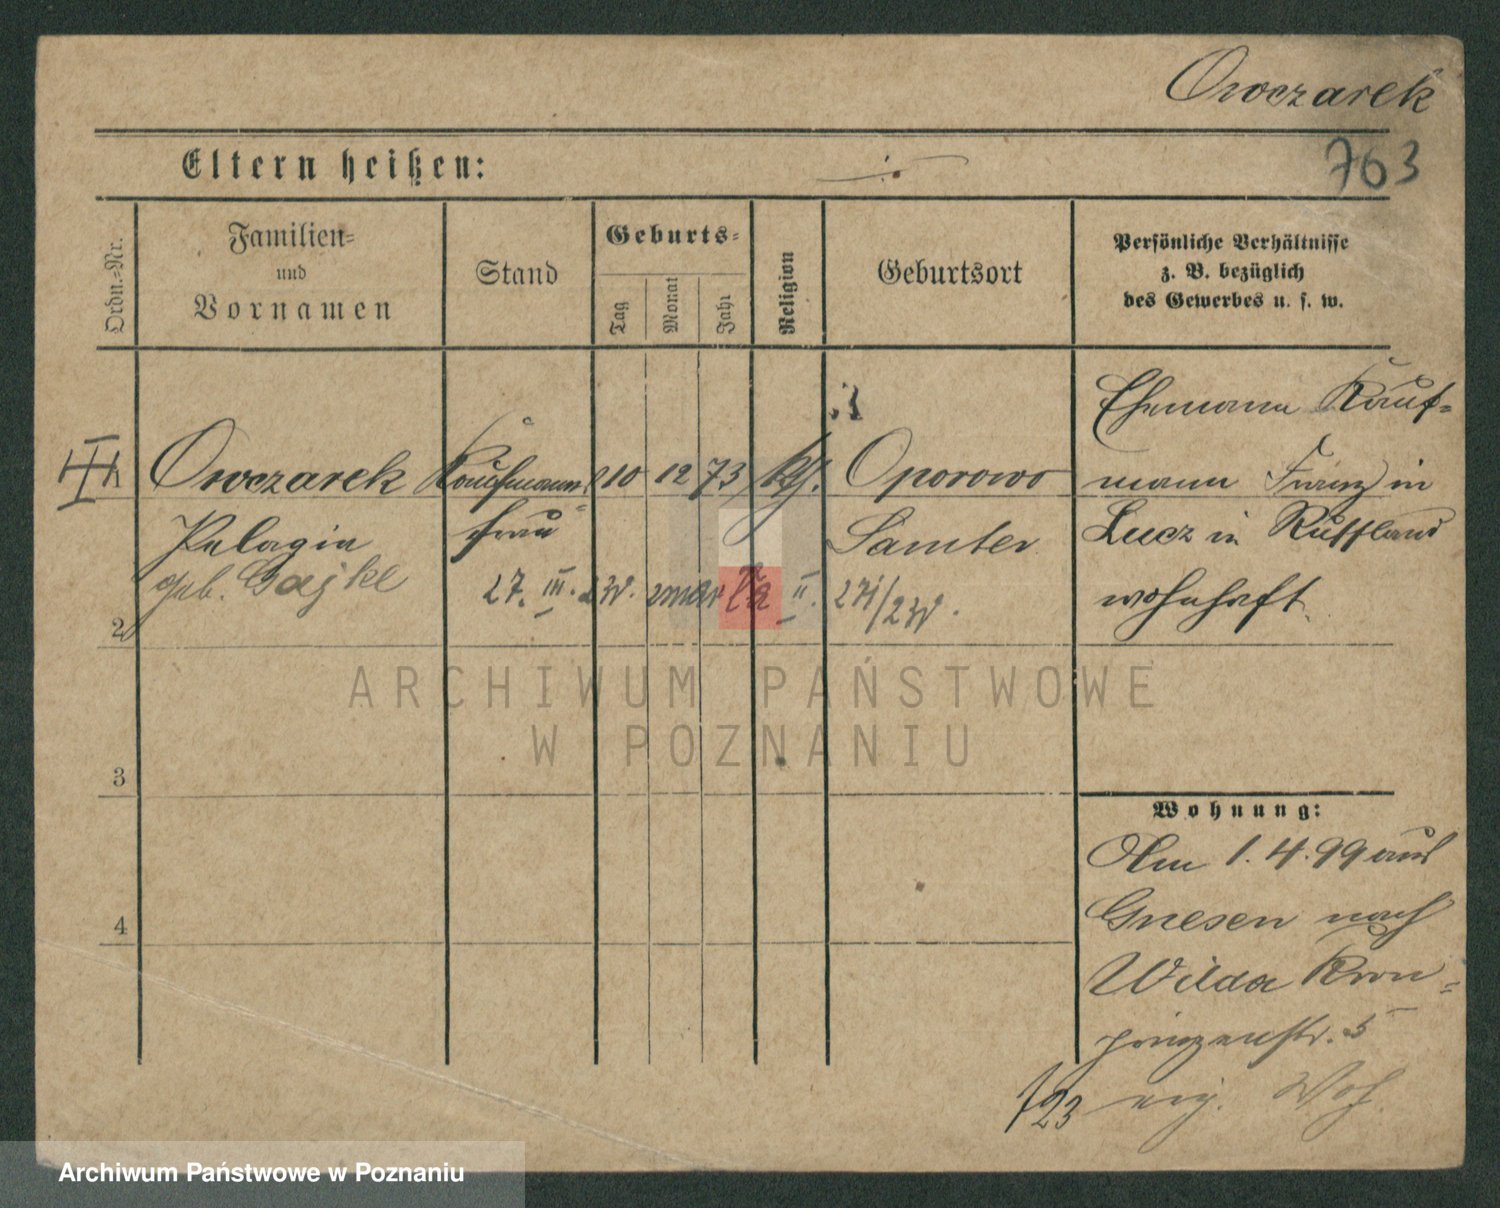 Owczarek
763
Eltern heißen:
Ordn.=Nr.
Familien=
und
Vornamen
Stand
Geburts=
Tag
Monat
Jahr
Religion
Geburtsort
Persönliche Verhältnisse
z. B. bezüglich
des Gewerbes u. s. w.
Owczarek
Pelagia
geb. Gajske
Kaufmanns=
frau
10 12 73 kth.
Oporowo
Samter
27. III.
II.
Ehemann Kauf=
mann Franz in
Lucz in Russland
wohnhaft.
2
3
4
Wohnung:
Am 1.4.99 aus
Gnesen nach
Wilda Kron=
prinzenstr. 5
723 eig. Woh.
ARCHIWUM PAŃSTWOWE
W POZNANIU
Archiwum Państwowe w Poznaniu